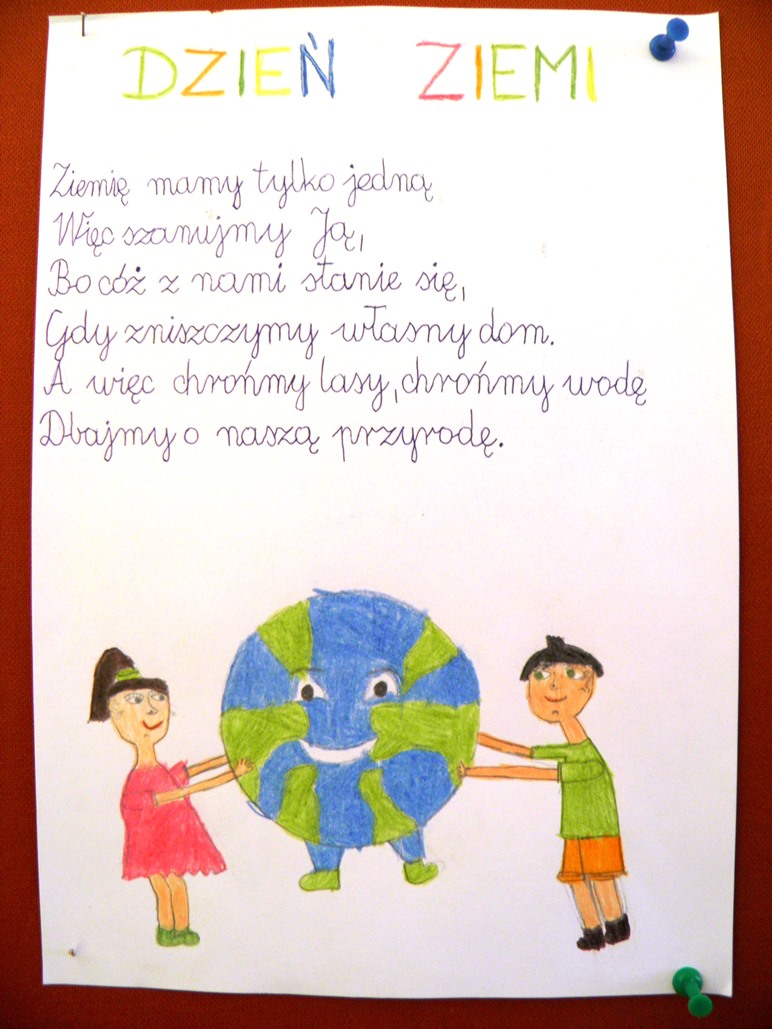 DZIEŃ ZIEMI
Ziemię mamy tylko jedną
Więc szanujmy Ją,
Bo cóż z nami stanie się,
Gdy zniszczymy własny dom.
A więc chrońmy lasy, chrońmy wodę
Dbajmy o naszą przyrodę.